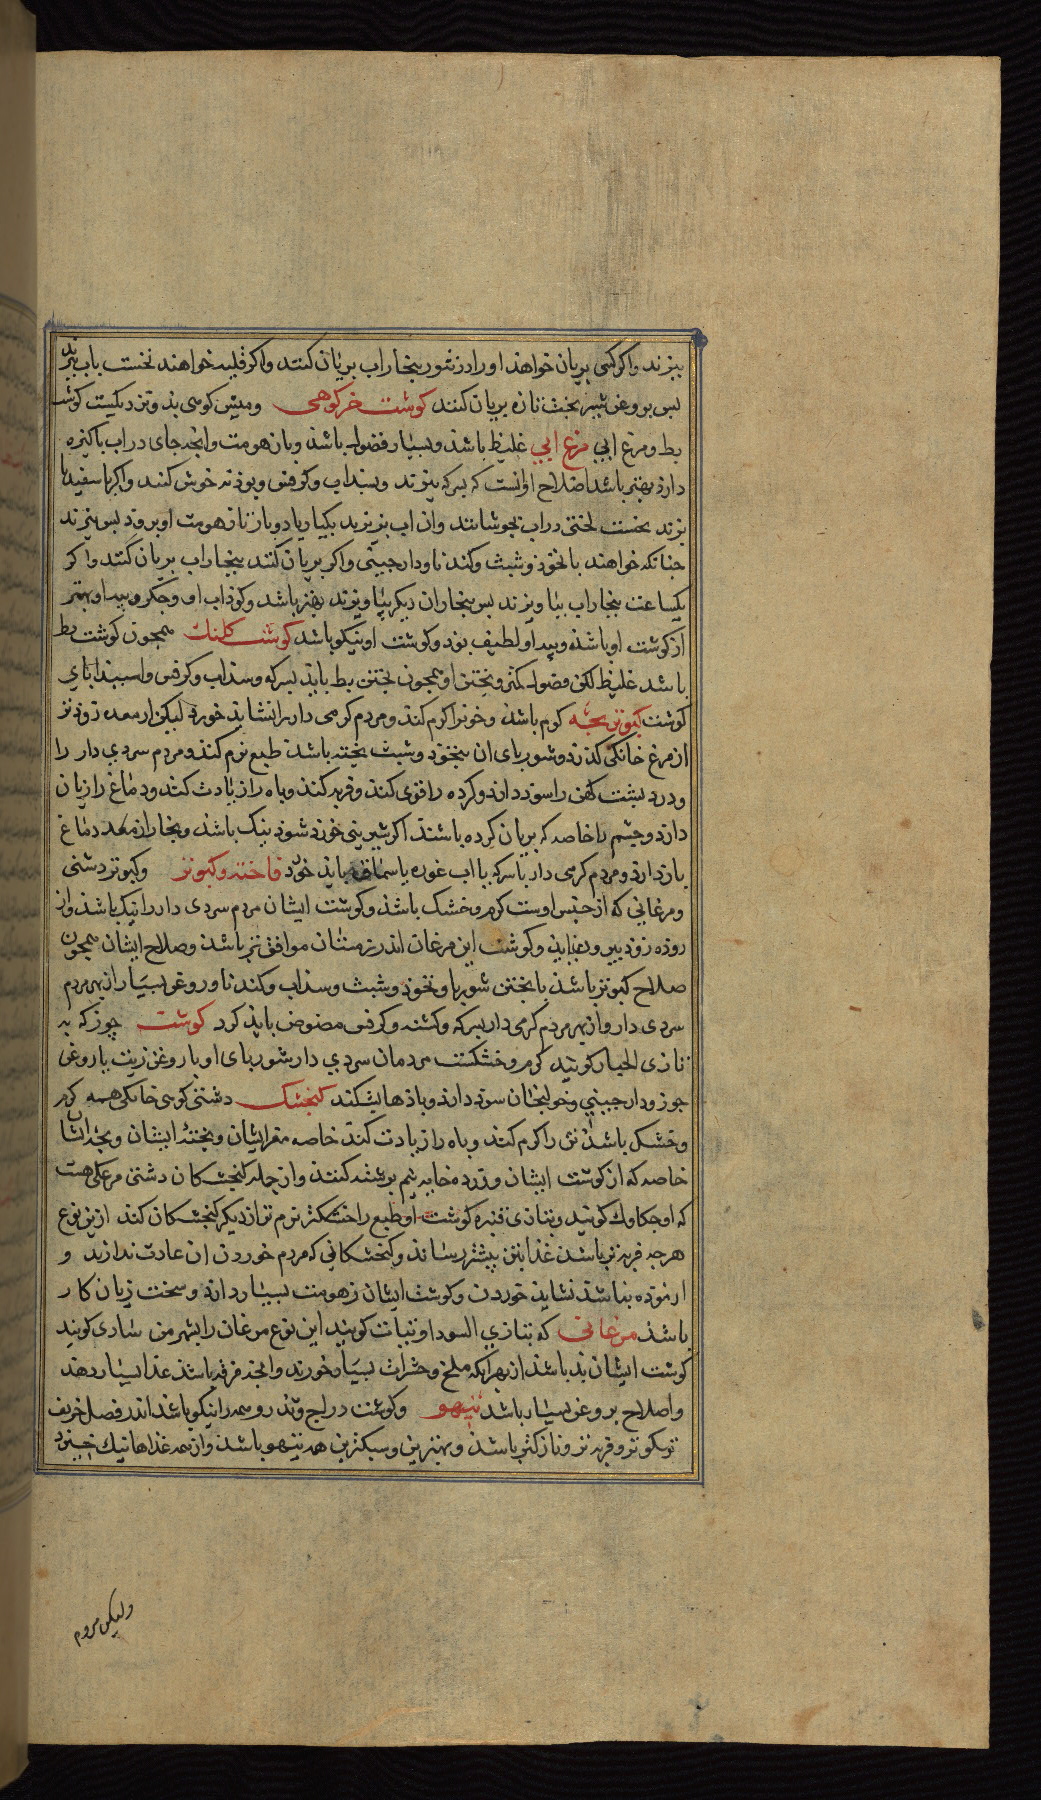 بپزند واکر کسی بریان خواهد اورا در تنور ببخار اب بریان کنند واکر قلیه خواهند نخست باب بپزند
بس بروغن شیر بخت تازه بریان کنند کوشت خرکوهی ومیش کوهی بذ ونزدیکست کوشت
بط ومرغ ابی مرغ ابی غلیظ باشد وبسیار فضول باشد وبازهومت وانجه جای در اب باکیزه
دارد بهتر باشد اصلاح او انست که بسرکه بپزند وبسداب وکرفس وبوذنه خوش کنند واکر باسفیدبا
بزند نخست لختی در اب بجوشانند وان اب بریزند یکبار یا دوبار تا زهومت او برود بس بپزند
جنانکه خواهند بانخود وشبث وکندنا ودارجینی واکر بریان کنند ببخار اب بریان کنند واکر
یکساعت ببخار اب بیاویزند بس ببخار ان دیکر بیاویزند بهتر باشد وکوذاب او وجکر وبیه او بهتر
از کوشت او باشد وبیه او لطیف بود وکوشت او نیکو باشد کوشت کلنک همجون کوشت بط
باشد غلیظ لکن فضول کمتر وبختن او همجون بختن بط باید بسرکه وسداب وکرفس واسبیدابای
کوشت کبوتر بچه کرم باشد وخون را کرم کند ومردم کرمی دار را نشاید خورد لیکن از معده زودتر
از مرغ خانکی کذرد وشوربای ان بنخود وشبت بخته باشد طبع نرم کند ومردم سردی دار را
ودرد بشت کهن را سود دارد وکرده را قوی کند وفربه کند وباه را زیادت کند ودماغ را زیان
دارد وجشم را خاصه که بریان کرده باشند اکر شیرینی خورد شود نیک باشد وبخار از معده دماغ
باز دارد ومردم کرمی دار باسرکه یا اب غوره یا سماق باید خورد فاخته وکبوتر وکبوتر دشتی
ومرغانی که از جنس اوست کرم وخشک باشد وکوشت ایشان مردم سردی دار را نیک باشد واز
روده زود بیرون نیاید وکوشت این مرغان اندر زمستان موافق تر باشد وصلاح ایشان همجون
صلاح کبوتر باشد بابختن شوربا ونخود وشبث وسداب وکندنا وروغن بسیار از بهر مردم
سردی دار واز بهر مردم کرمی دار بسرکه وکشنه وکرفس مصوص باید کرد کوشت چوز که به
تازی الحبار کویند کرم وخشکست مردمان سردی دار شوربای او با روغن زیت یا روغن
جوز ودارجینی وخولنجان سود دارد وبادها بشکند کنجشک دشتی کوهی خانکی همه کرم
وخشک باشد تن را کرم کند وباه را زیادت کند خاصه مغز ایشان وبخته ایشان وبخته ایشان
خاصه که از کوشت ایشان وزرده خایه نیم برشته کنند واز جمله کنجشکان دشتی مرغکی هست
که او جکاوک کویند وبتازی قنبره کوشت او طبع را خشکتر نرم تر از دیکر کنجشکان کند از این نوع
هرجه فربه تر باشد غذا بتن بیشتر رساند وکنجشکانی که مردم خوردن ان عادت ندارند و
ازموده نباشد نشاید خوردن وکوشت ایشان زهومت بسیار دارد وسخت زیان کار
باشد مرغانی که بتازی السودانیات کویند این نوع مرغان را بشهر من ساری کویند
کوشت ایشان بد باشد از بهر انکه ملخ وحشرات بسیار خورند وانجه فربه باشد غذا بسیار دهد
واصلاح بروغن بسیار باشد تیهو وکوشت دراج وتذرو همه را نیکو باشد اندر فصل خریف
نیکوتر وفربه تر ونازکتر باشد وبهترین وسبکترین همه تیهو باشد واز همه غذاها نیک
ولیکن مردم